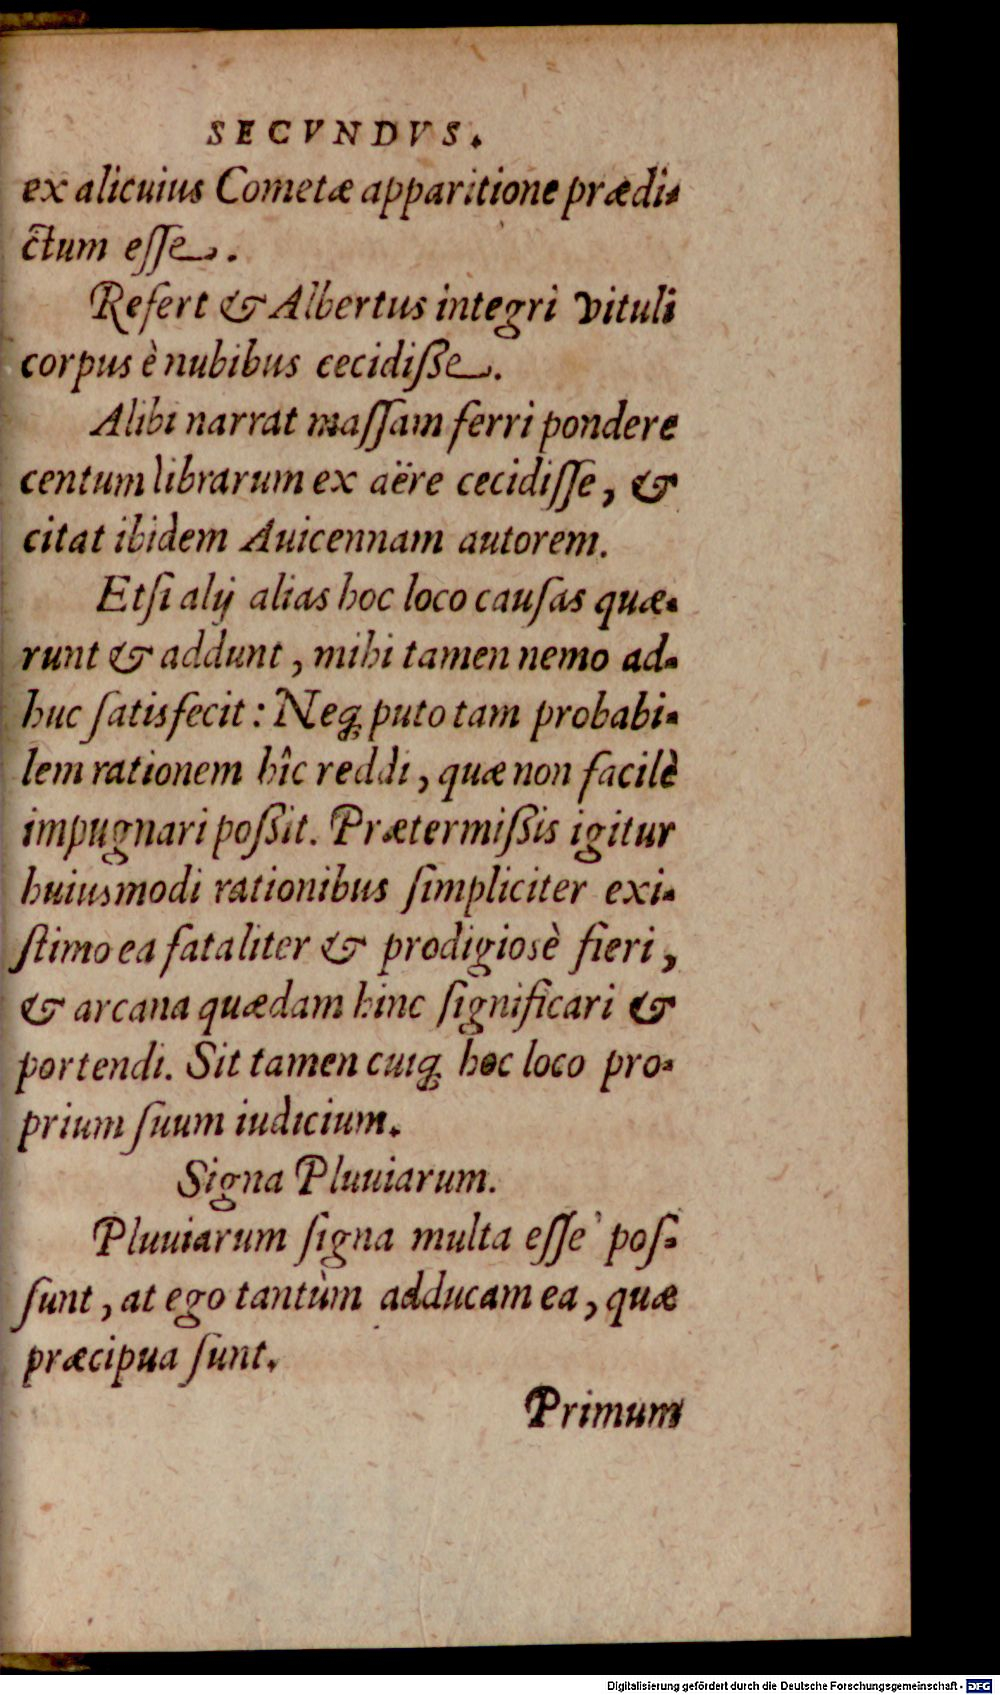 SECVNDVS.
ex alicuius Cometæ apparitione prædi-
ctum esse.
Refert & Albertus integri vituli
corpus è nubibus cecidiße.
Alibi narrat maſſam ferri pondere
centum librarum ex aëre cecidiſſe, &
citat ibidem Auicennam autorem.
Etſi alij alias hoc loco cauſas quæ-
runt & addunt, mihi tamen nemo ad-
huc ſatisfecit: Neq; puto tam probabi-
lem rationem hîc reddi, quæ non facilè
impugnari poßit. Prætermißis igitur
huiusmodi rationibus ſimpliciter exi-
ſtimo ea fataliter & prodigiosè fieri,
& arcana quædam hinc ſignificari &
portendi. Sit tamen cuiq; hoc loco pro-
prium ſuum iudicium.
Signa Pluuiarum.
Pluuiarum ſigna multa eſſe poſ-
ſunt, at ego tantùm adducam ea, quæ
præcipua ſunt.
Primum
Digitalisierung gefördert durch die Deutsche Forschungsgemeinschaft - DFG